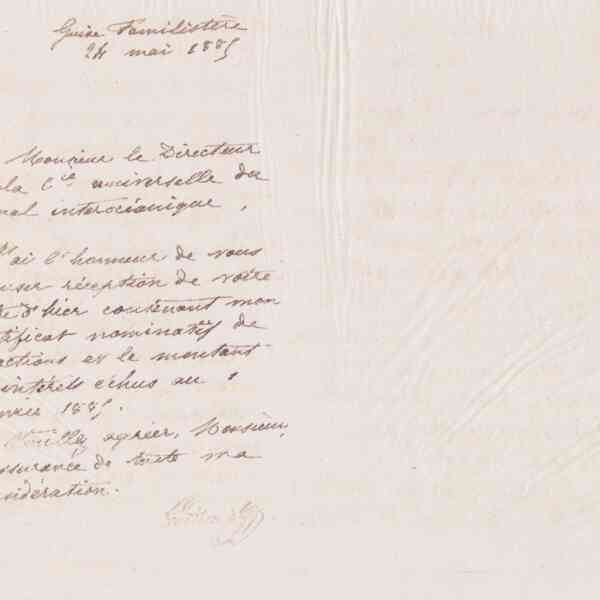 Guise Familistère
24 mai 1885
Monsieur le Directeur
la Cie universelle du
nal interocéanique,
ai l'honneur de vous
user réception de votre
d'hier contenant mon
tificat nominatif de
actions et le montant
intérêts échus au 1
nvier 1885.
Veuillez agréer, Monsieur,
ssurance de toute ma
nsidération.